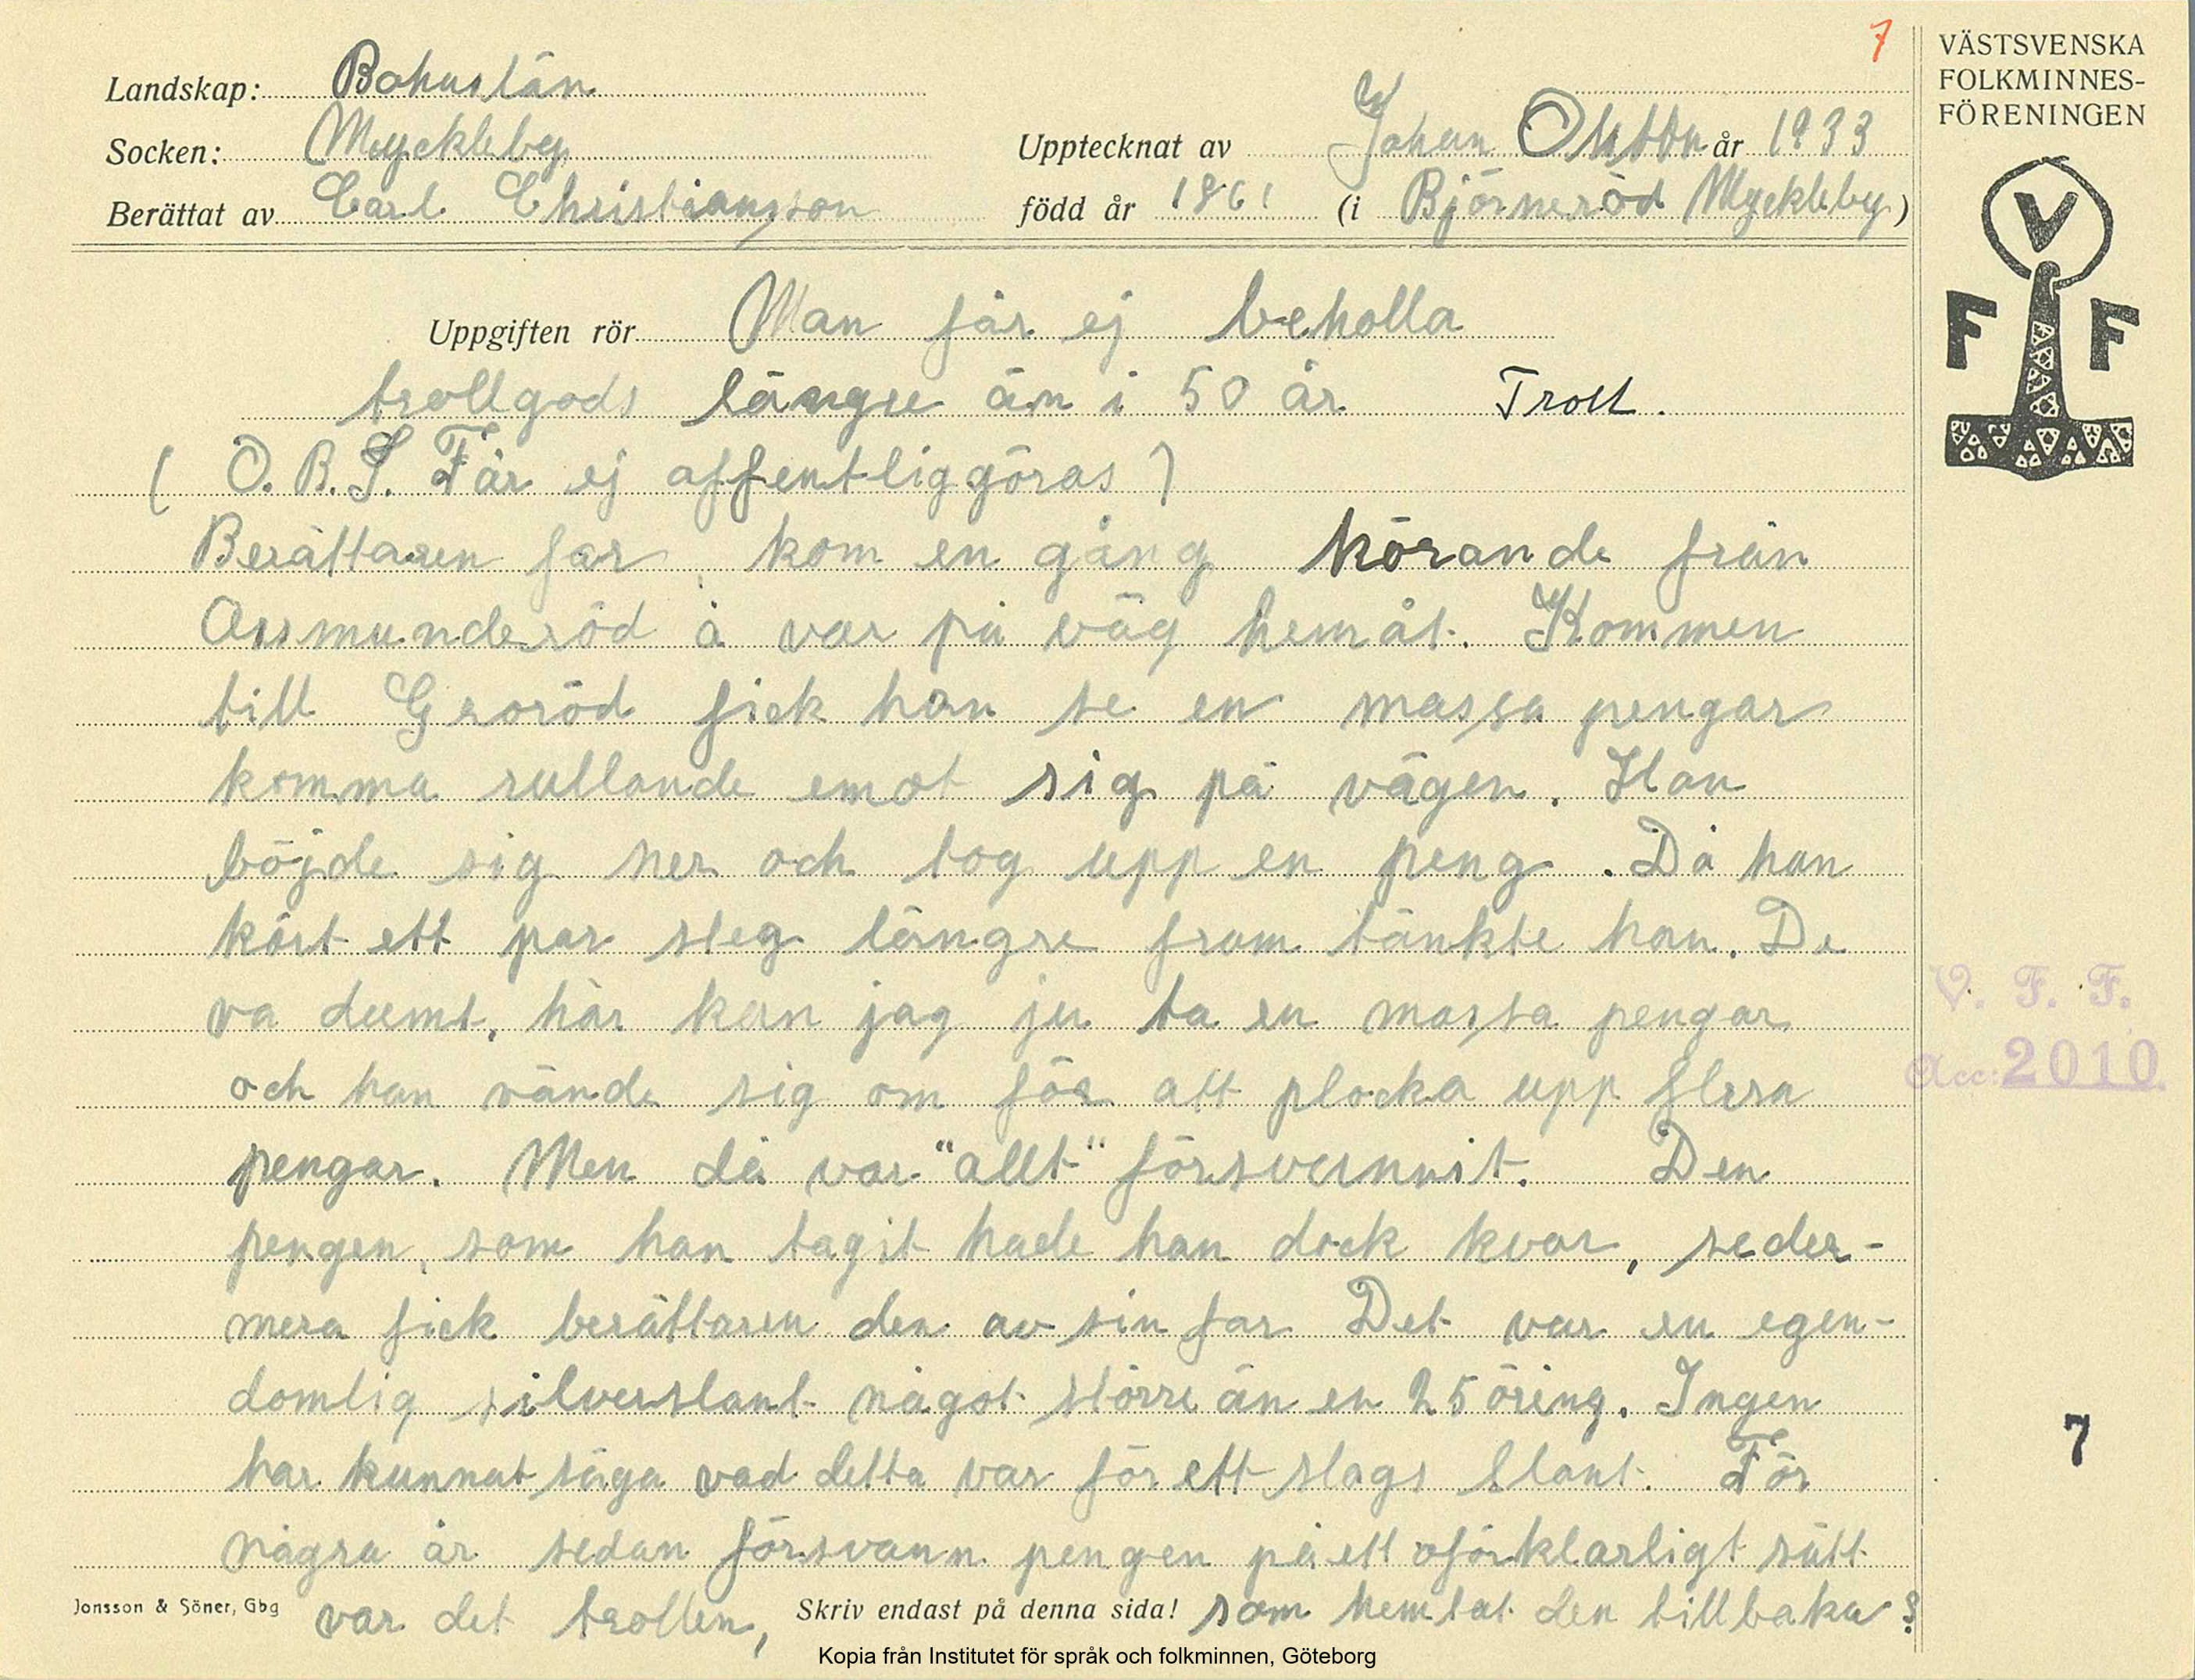 7
VÄSTSVENSKA
FOLKMINNES-
FÖRENINGEN
Landskap: Bohuslän
Socken: Myckleby
Upptecknat av Johan år 1933
Berättat av Carl Christiansson född år 1861 (i Björneröd Myckleby)
V
F F
Uppgiften rör Man får ej beholla
trollgods längre än i 50 år Troll.
( O.B.S. Får ej offentliggöras )
Berättaren far, kom en gång körande från
Assmunderöd å var på väg hemåt. Kommen
till Groröd fick han se en massa pengar
komma rullande emot sig på vägen. Han
böjde sig ner och tog upp en peng. Då han
kört ett par steg längre fram tänkte han. De
va dumt, här kan jag ju ta en massa pengar
och han vände sig om för att plocka upp flera
pengar. Men då var "allt" försvunnit. Den
pengen, som han tagit hade han dock kvar, seder-
mera fick berättaren den av sin far Det var en egen-
domlig silverslant något större än en 25 öring. Ingen
har kunnat säga vad detta var för ett slags slant. För
några år sedan försvann pengen på ett oförklarligt sätt
var det trollen, som hemtat den tillbaka?
Jonsson & Söner, Gbg
Skriv endast på denna sida!
V. F. F.
Acc: 2010
7
Kopia från Institutet för språk och folkminnen, Göteborg